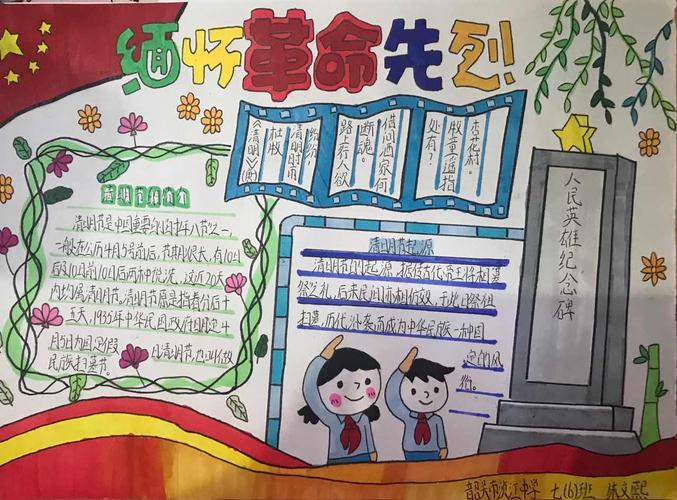 缅怀革命先烈!
《清明》(唐)
杜牧
清明时雨
纷纷,
路行人欲
断魂。
借问酒家何
处有?
牧童遥指
杏花村.
清明节是中国重要的
节之一,
一般在公历4月5号前后,节期很长,有10日
前10日后两种说法,这近20天
内均属清明节。清明节原是指春分后十
五天,1935年中华民国政府明定4
月5日为国定假日清明节,也叫做
民族扫墓节。
清明节起源
清明节的起源,据传古代帝王将相墓
祭之礼,后来民间亦相仿效,于此日祭祖
扫墓,历代沿袭而成为中华民族一种固
定的风
俗。
人民英雄纪念碑
韶关市浈江中学 七(6)班